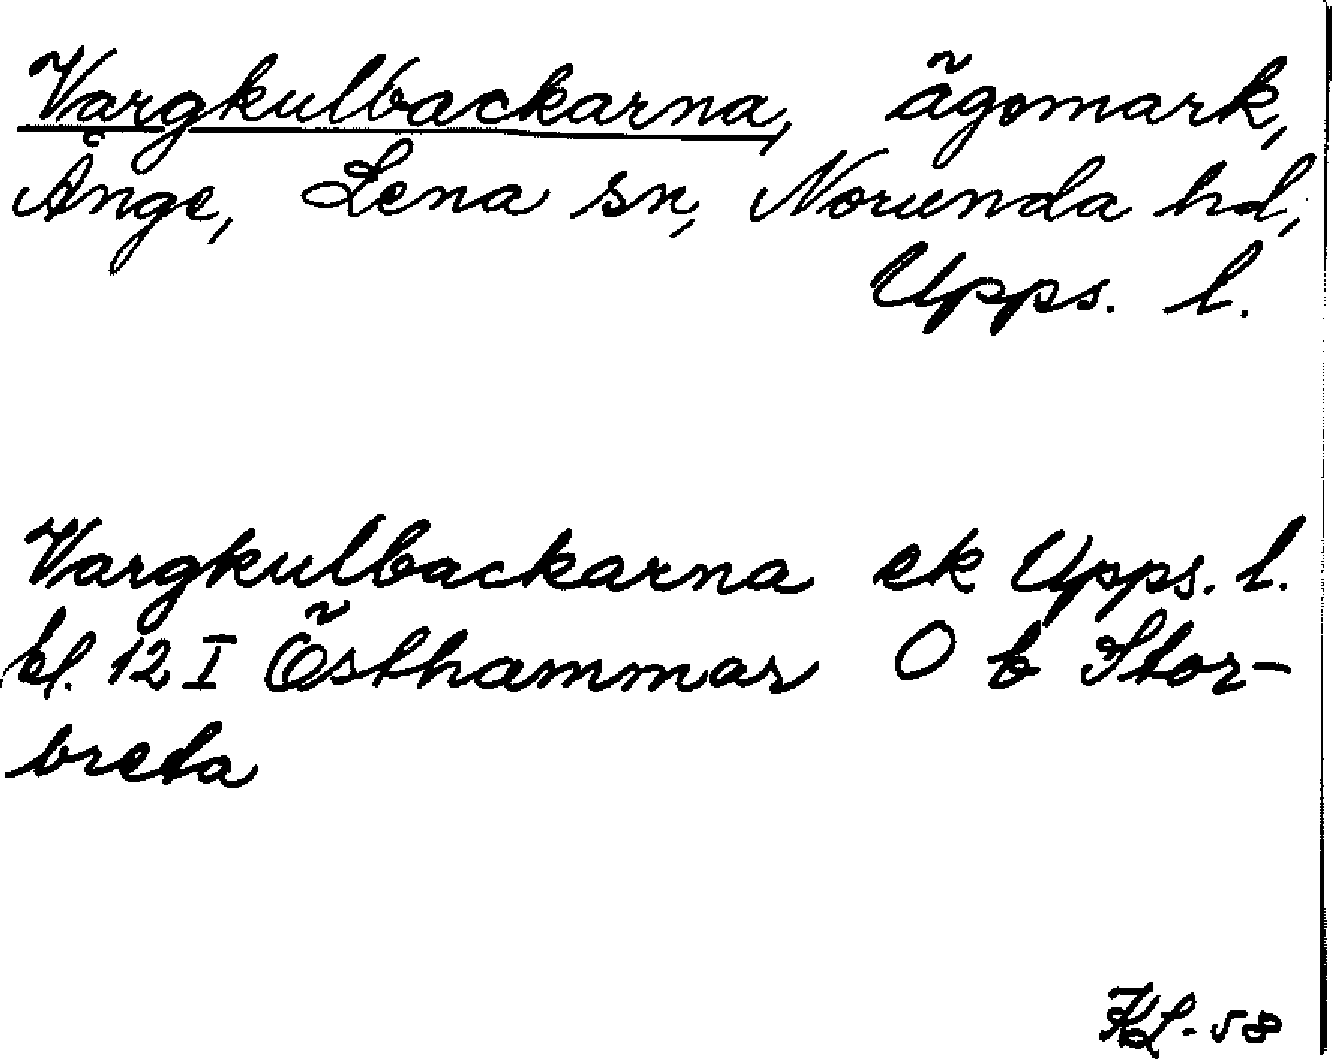 Vargkulbackarna, ägomark,
Änge, Lena sn, Norunda hd,
Upps. l.
Vargkulbackarna ek Upps. l.
bl. 12 I Östhammar O b Stor-
breta
KL-58